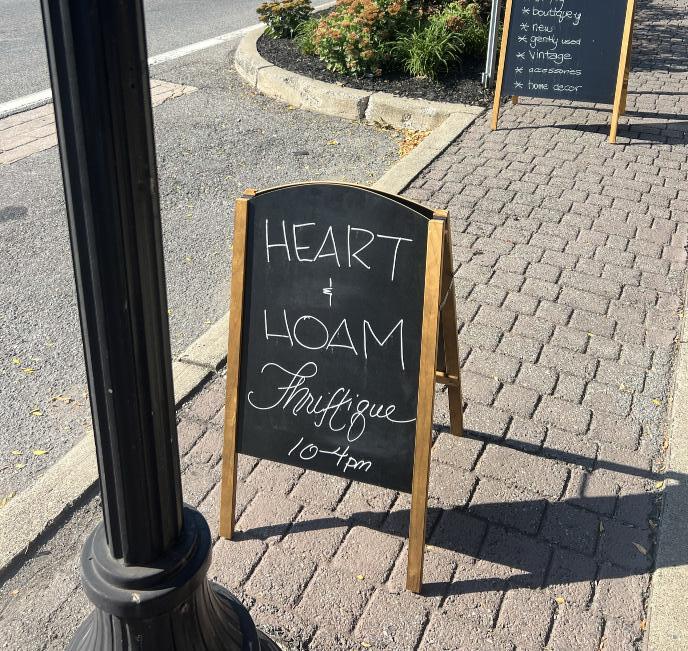 HEART
&
HOAM
Thriftique
10-4pm
* boutique-y
* new
* gently used
* vintage
* accessories
* home decor